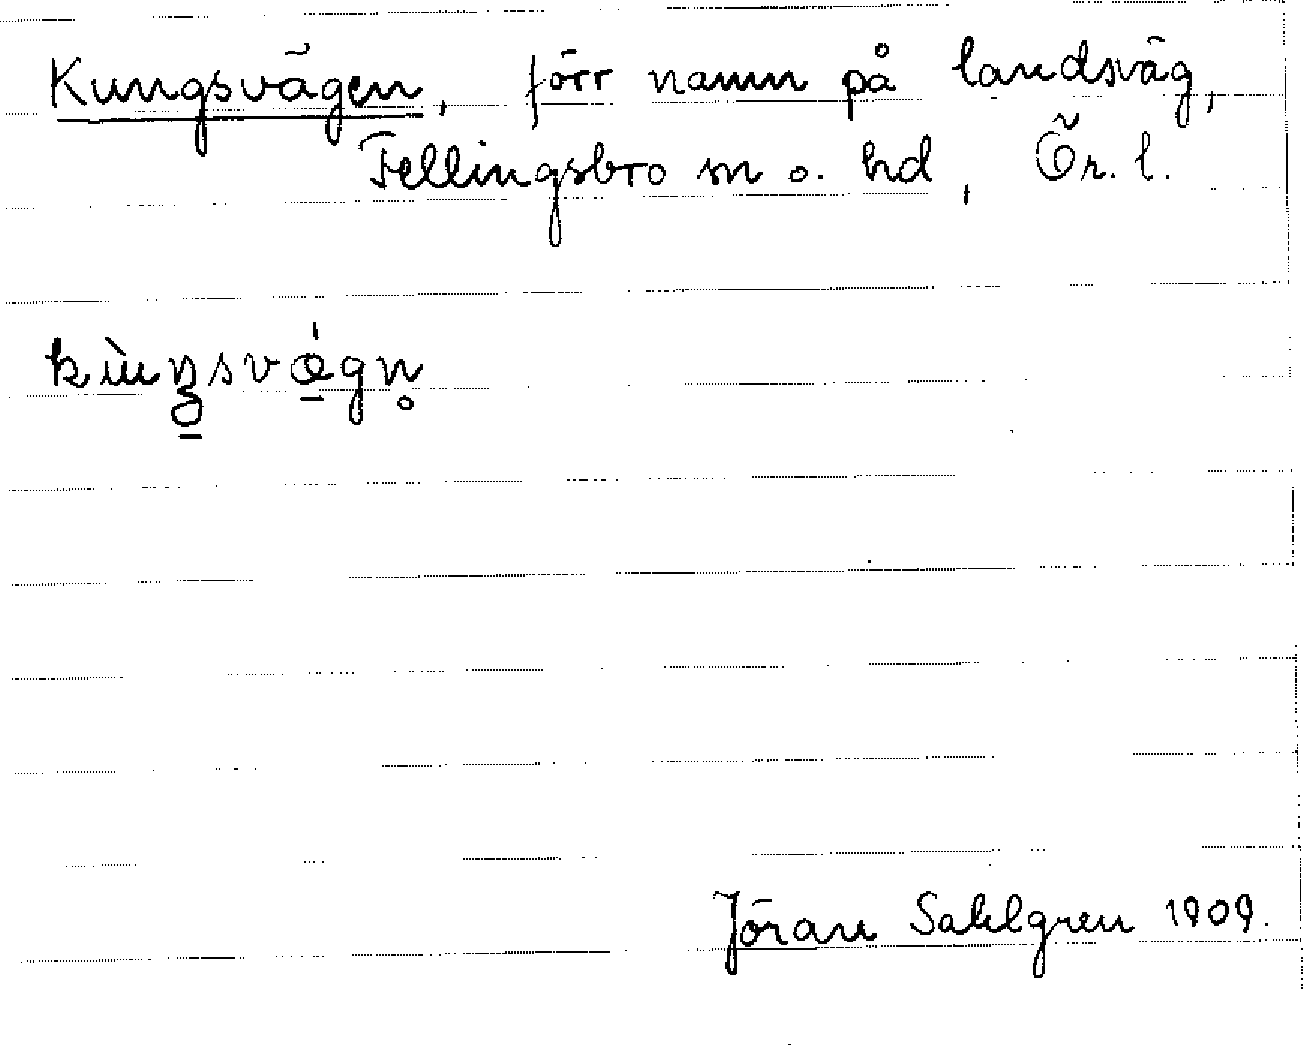 Kungsvägen, förr namn på landsväg,
Fellingsbro sn o. hd, Ör. l.
kùŋsvǽgn̥
Jöran Sahlgren 1909.